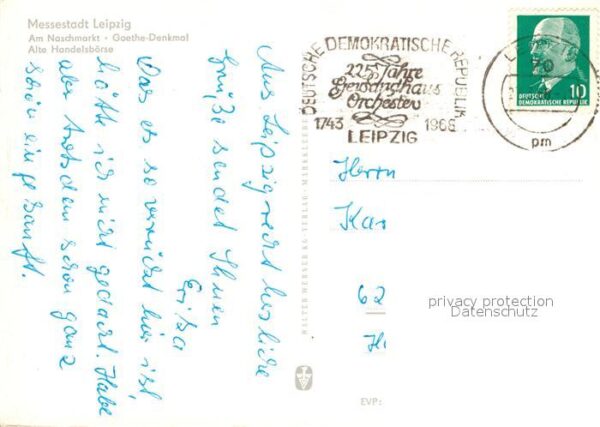 Messestadt Leipzig
Am Naschmarkt · Goethe-Denkmal
Alte Handelsbörse
Aus Leipzig recht herzliche
Grüße sendet Ihnen
Erika
Das es so verrückt hier ist,
hätte ich nicht gedacht. Habe
aber trotzdem schon ganz
schön eingekauft.
WALTER WERNER KG · VERLAG · MARKKLEEBERG
EVP:
DEUTSCHE DEMOKRATISCHE REPUBLIK
225 Jahre
Gewandhaus
Orchester
1743 1968
LEIPZIG
70
pm
DEUTSCHE
DEMOKRATISCHE REPUBLIK 10
Herrn
62
privacy protection
Datenschutz